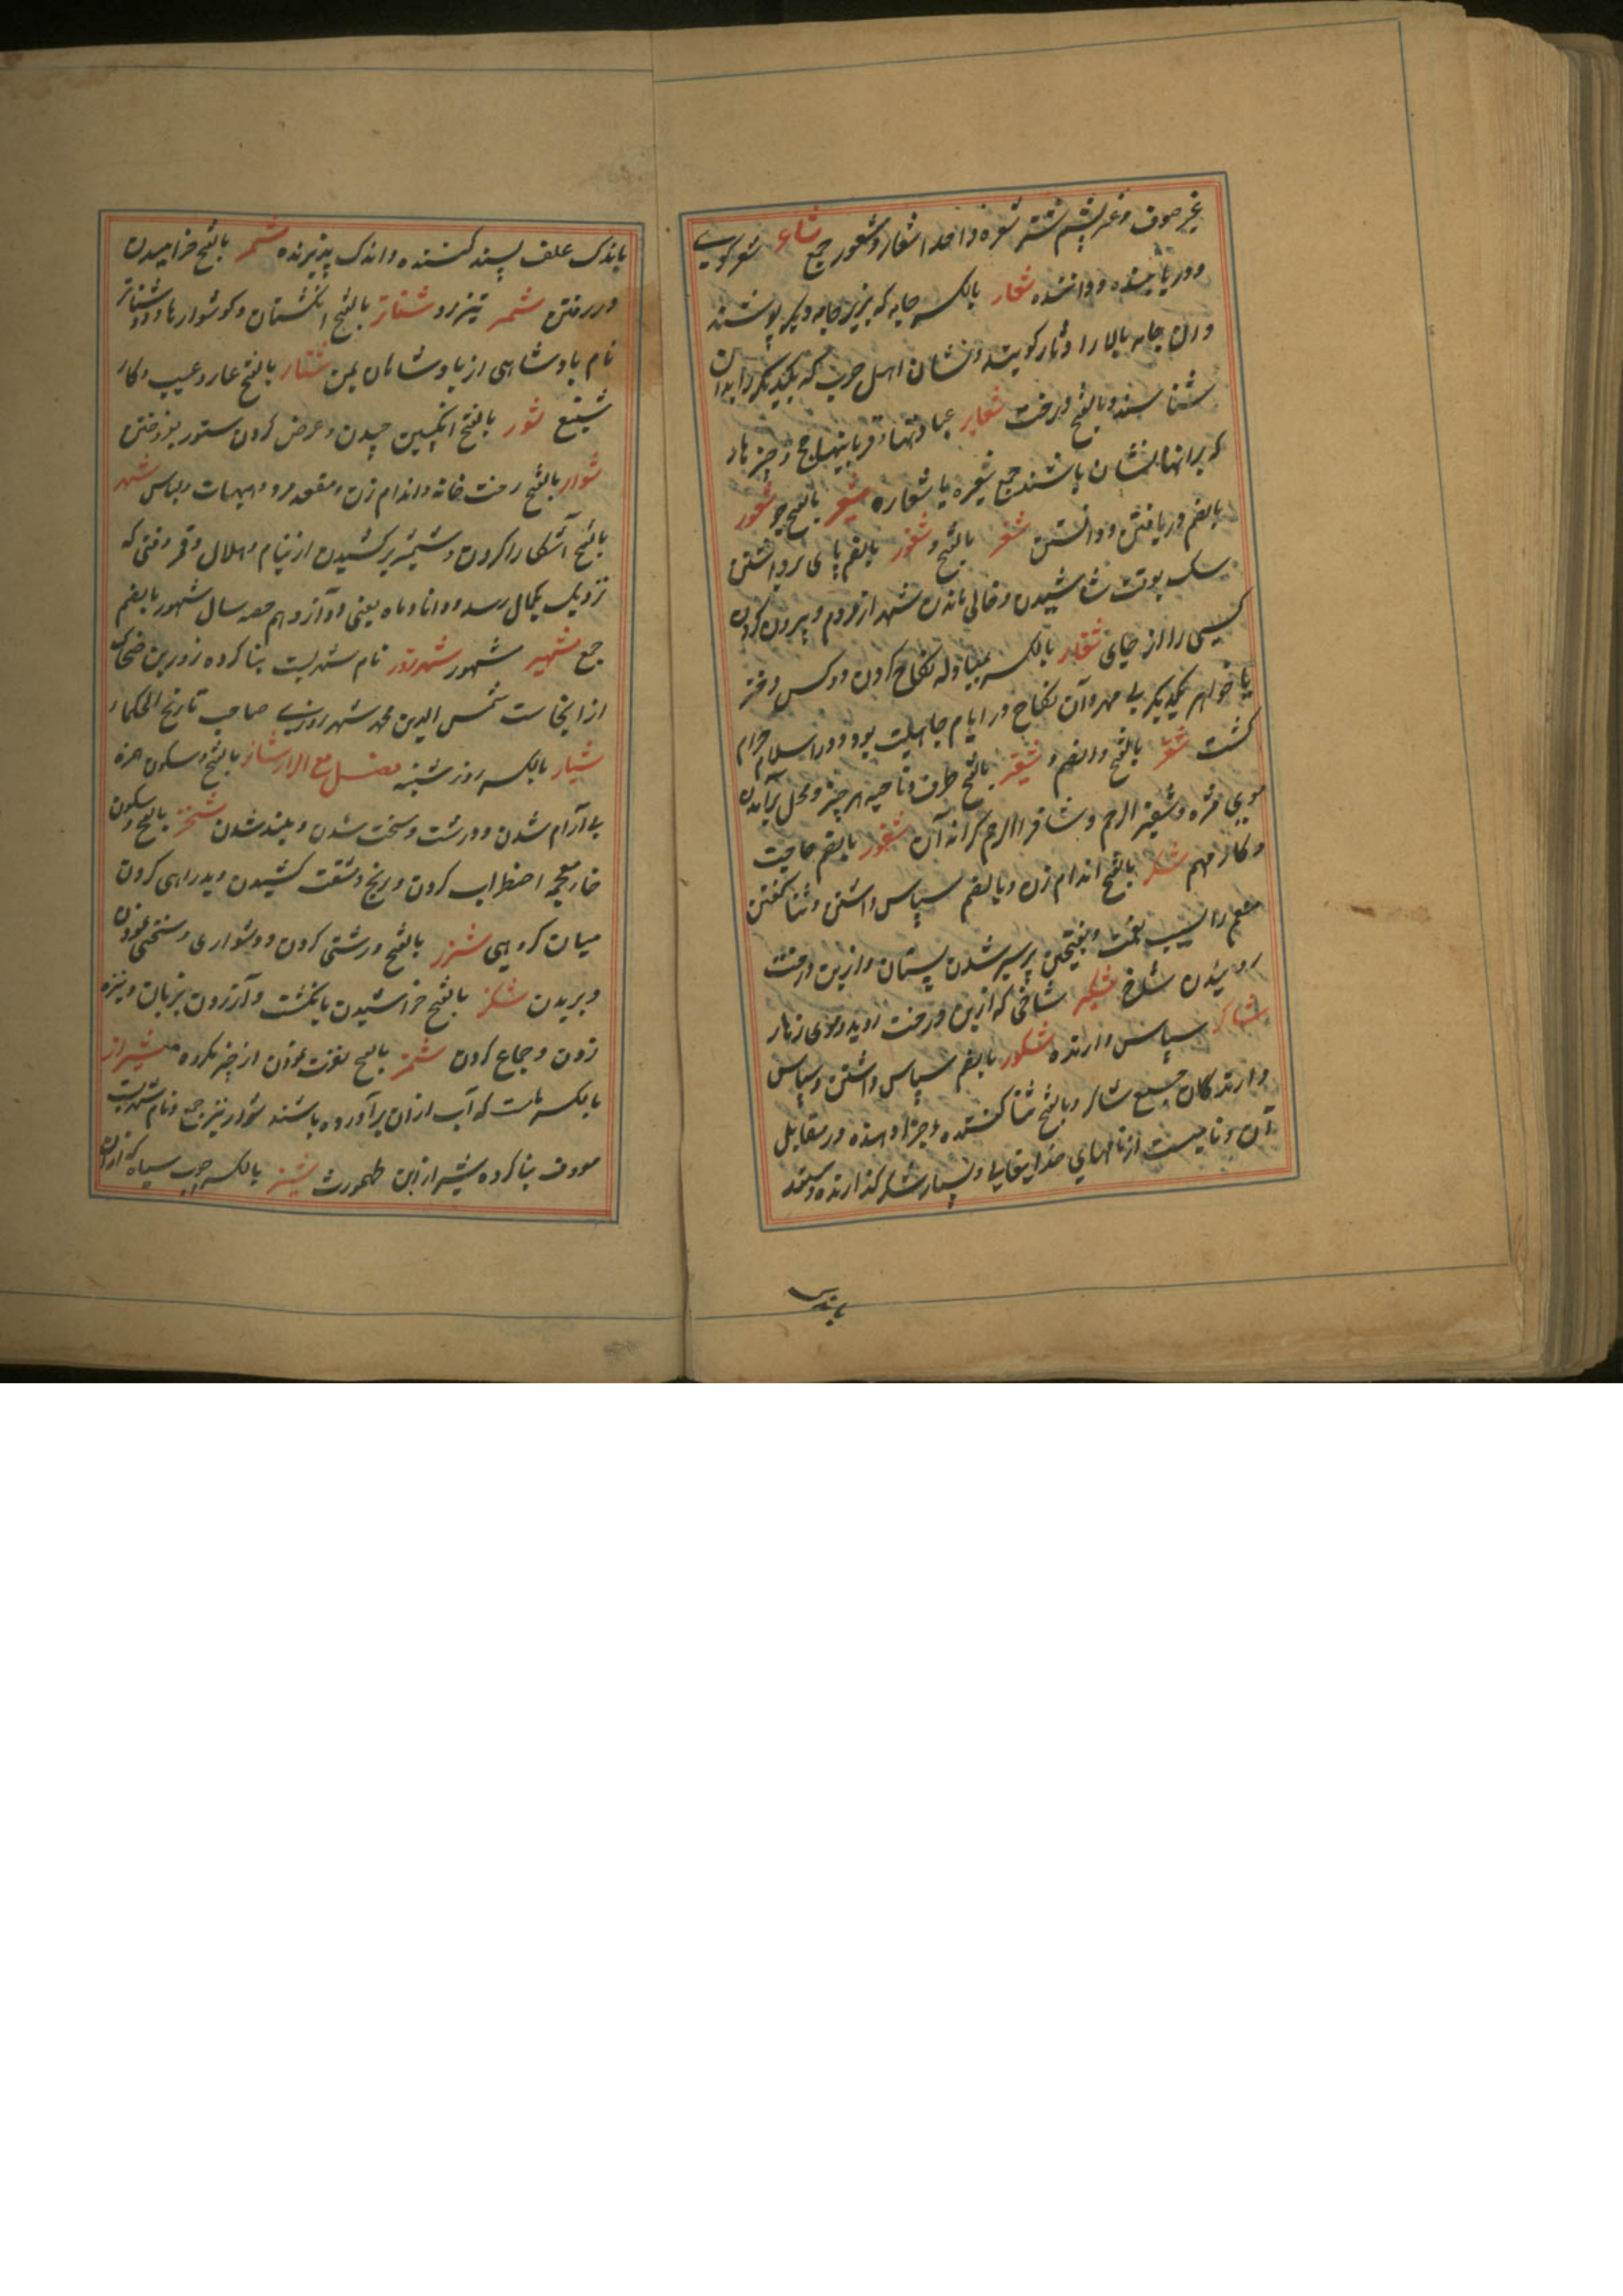 غیر صوف و غیر پشم شتر شعره واحد اشعار و شعور جمع شاعر شعر کوی
و دریابنده و داننده شعار بالکسر جامه که بزیر جامه دیگر پوشند
و آن جامه بالا را دثار کویند و نشان اهل حرب که یکدیگر را بدان
شناسند و بالفتح درخت شعایر عبادتها و قربانیها حج و چیزها
که بر آنها نشان باشند جمع شعیره یا شعاره شعیر بالفتح جو شعور
بالضم دریافتن و دانستن شغر بالفتح و شغور بالضم پای برداشتن
سک بوقت شاشیدن و خالی ماندن شهر از مردم و بیرون کردن
کسی را از جای شغار بالکسر بمبادله نکاح کردن دو کس دختر
یا خواهر یکدیگر بی مهر و آن نکاح در ایام جاهلیت بود و در اسلام حرام
کشت شفر بالفتح و الضم و شفیر بالفتح طرف و ناحیه هر چیز و محل برآمدن
موی مژه و شفیر الرحم و شافر الرحم کرانه آن شقور بالضم حاجت
و کار مهم شکر بالفتح اندام زن و بالضم سپاس داشتن و ثنا کفتن
منعم را بسبب نعمت و بفتحتین پر شیر شدن پستان و از بن درخت
روئیدن شاخ شکیر شاخی که از بن درخت روید و موی زهار
شاکر سپاس دارنده شکور بالضم سپاس داشتن و سپاس
دارندکان جمع شاکر و بالفتح ثنا کننده و جزا دهنده در مقابل
آن و نامیست از نامهای خدایتعالی و بسیار شکر کذارنده و ستور
باندک
باندک علف پسند کننده و اندک پذیرنده شمر بالفتح خرامیدن
در رفتن شمر تیزرو شناتر بالفتح انکشتان و کوشوارها و ذو شناتر
نام پادشاهی از پادشاهان یمن شنار بالفتح عار و عیب و کار
شنیع شور بالفتح انکبین چیدن و عرض کردن ستور بفروختن
شوار بالفتح رخت خانه و اندام زن و مقعد مرد و هیهات و لباس شهر
بالفتح آشکارا کردن و شمشیر برکشیدن از نیام و هلال و قمر وقتی که
نزدیک بکمال رسد و دانا و ماه یعنی دوازدهم حصه سال شهور بالضم
جمع شهیر مشهور شهرزور نام شهریست بنا کرده زور بن ضحاک
از آنجاست شمس الدین محمد شهرزوری صاحب تاریخ الحکماء
شیار بالکسر روز شنبه فصل مع الزا شاز بالفتح و سکون همزه
بی آرام شدن و درشت و سخت شدن و بلند شدن شخز بالفتح و سکون
خا معجمه اضطراب کردن و رنج و مشقت کشیدن و بدراهی کردن
میان کروهی شرز بالفتح درشتی کردن و دشواری و سختی نمودن
و بریدن شکز بالفتح خراشیدن بانکشت و آزردن بزبان و نیزه
زدن و جماع کردن شمز بالفتح نفرت نمودن از چیز مکروه شیراز
بالکسر ماست که آب از آن برآورده باشند شواریز جمع و نام شهریست
معروف بنا کرده شیراز بن طهمورث شیز بالکسر چوب سیاه که از آن